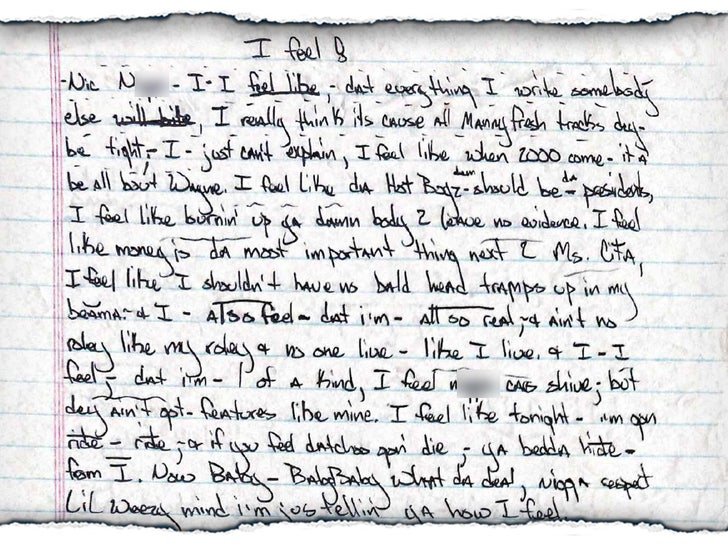 I feel
-Nic N - I - I feel like, - dat everything I write somebody
else will bite, I really think its cause All Manny fresh tracks dey -
be tight, - I - just can't explain, I feel like when 2000 come - it'
be all bout Wayne. I feel like da Hot Boyz - should be - da presidents,
I feel like burnin' up ya damn body 2 leave no evidence. I feel
like money is da most important thing next 2 Ms. CitA,
I feel like I shouldn't have no bald head tramps up in my
beama - & I - Also feel - dat i'm - All so real, - & Ain't no
roley like my roley & no one live - like I live. & I - I
feel - dat i'm - 1 of A kind, I feel n CAs shive; but
dey Ain't got - features like mine. I feel like tonight - i'm gon
ride - ride, - & if you feel datchoo gon' die, - ya bedda hide -
from I. Now Baby - BabyBaby What da deal, nigga respect
Lil Weezy mind i'm jus tellin' yA how I feel.